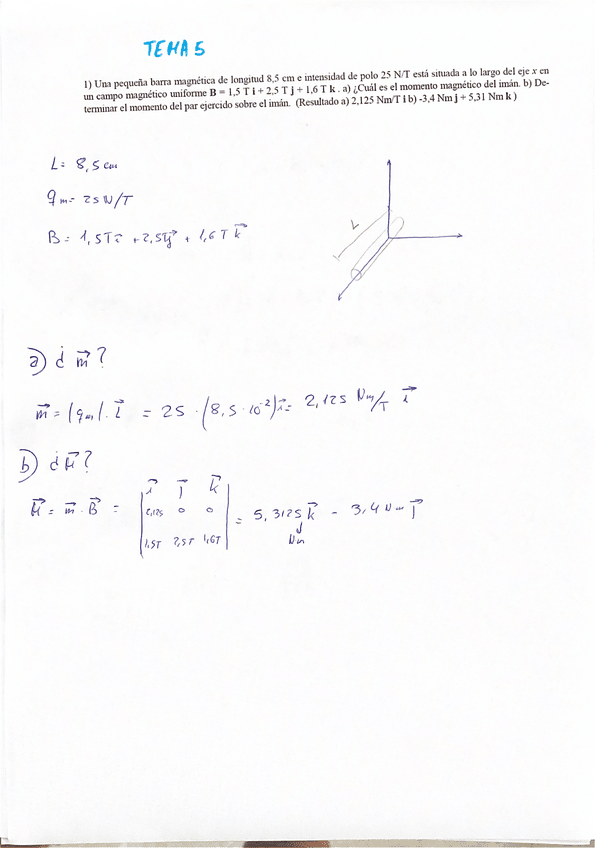 TEMA 5
1) Una pequeña barra magnética de longitud 8,5 cm e intensidad de polo 25 N/T está situada a lo largo del eje x en
un campo magnético uniforme B = 1,5 T i + 2,5 T j + 1,6 T k . a) ¿Cuál es el momento magnético del imán. b) De-
terminar el momento del par ejercido sobre el imán. (Resultado a) 2,125 Nm/T i b) -3,4 Nm j + 5,31 Nm k )
L = 8,5 cm
qm = 25 N/T
B = 1,5T i⃗ + 2,5T j⃗ + 1,6 T k⃗
L
a) ¿ m⃗ ?
m⃗ = |qm| · l⃗ = 25 · (8,5 · 10⁻²) i⃗ = 2,125 Nm/T i⃗
b) ¿ M⃗ ?
i⃗ j⃗ k⃗
M⃗ = m⃗ · B⃗ = | 2,125 0 0 | = 5,3125 k⃗ - 3,4 Nm j⃗
1,5T 2,5T 1,6T
Nm